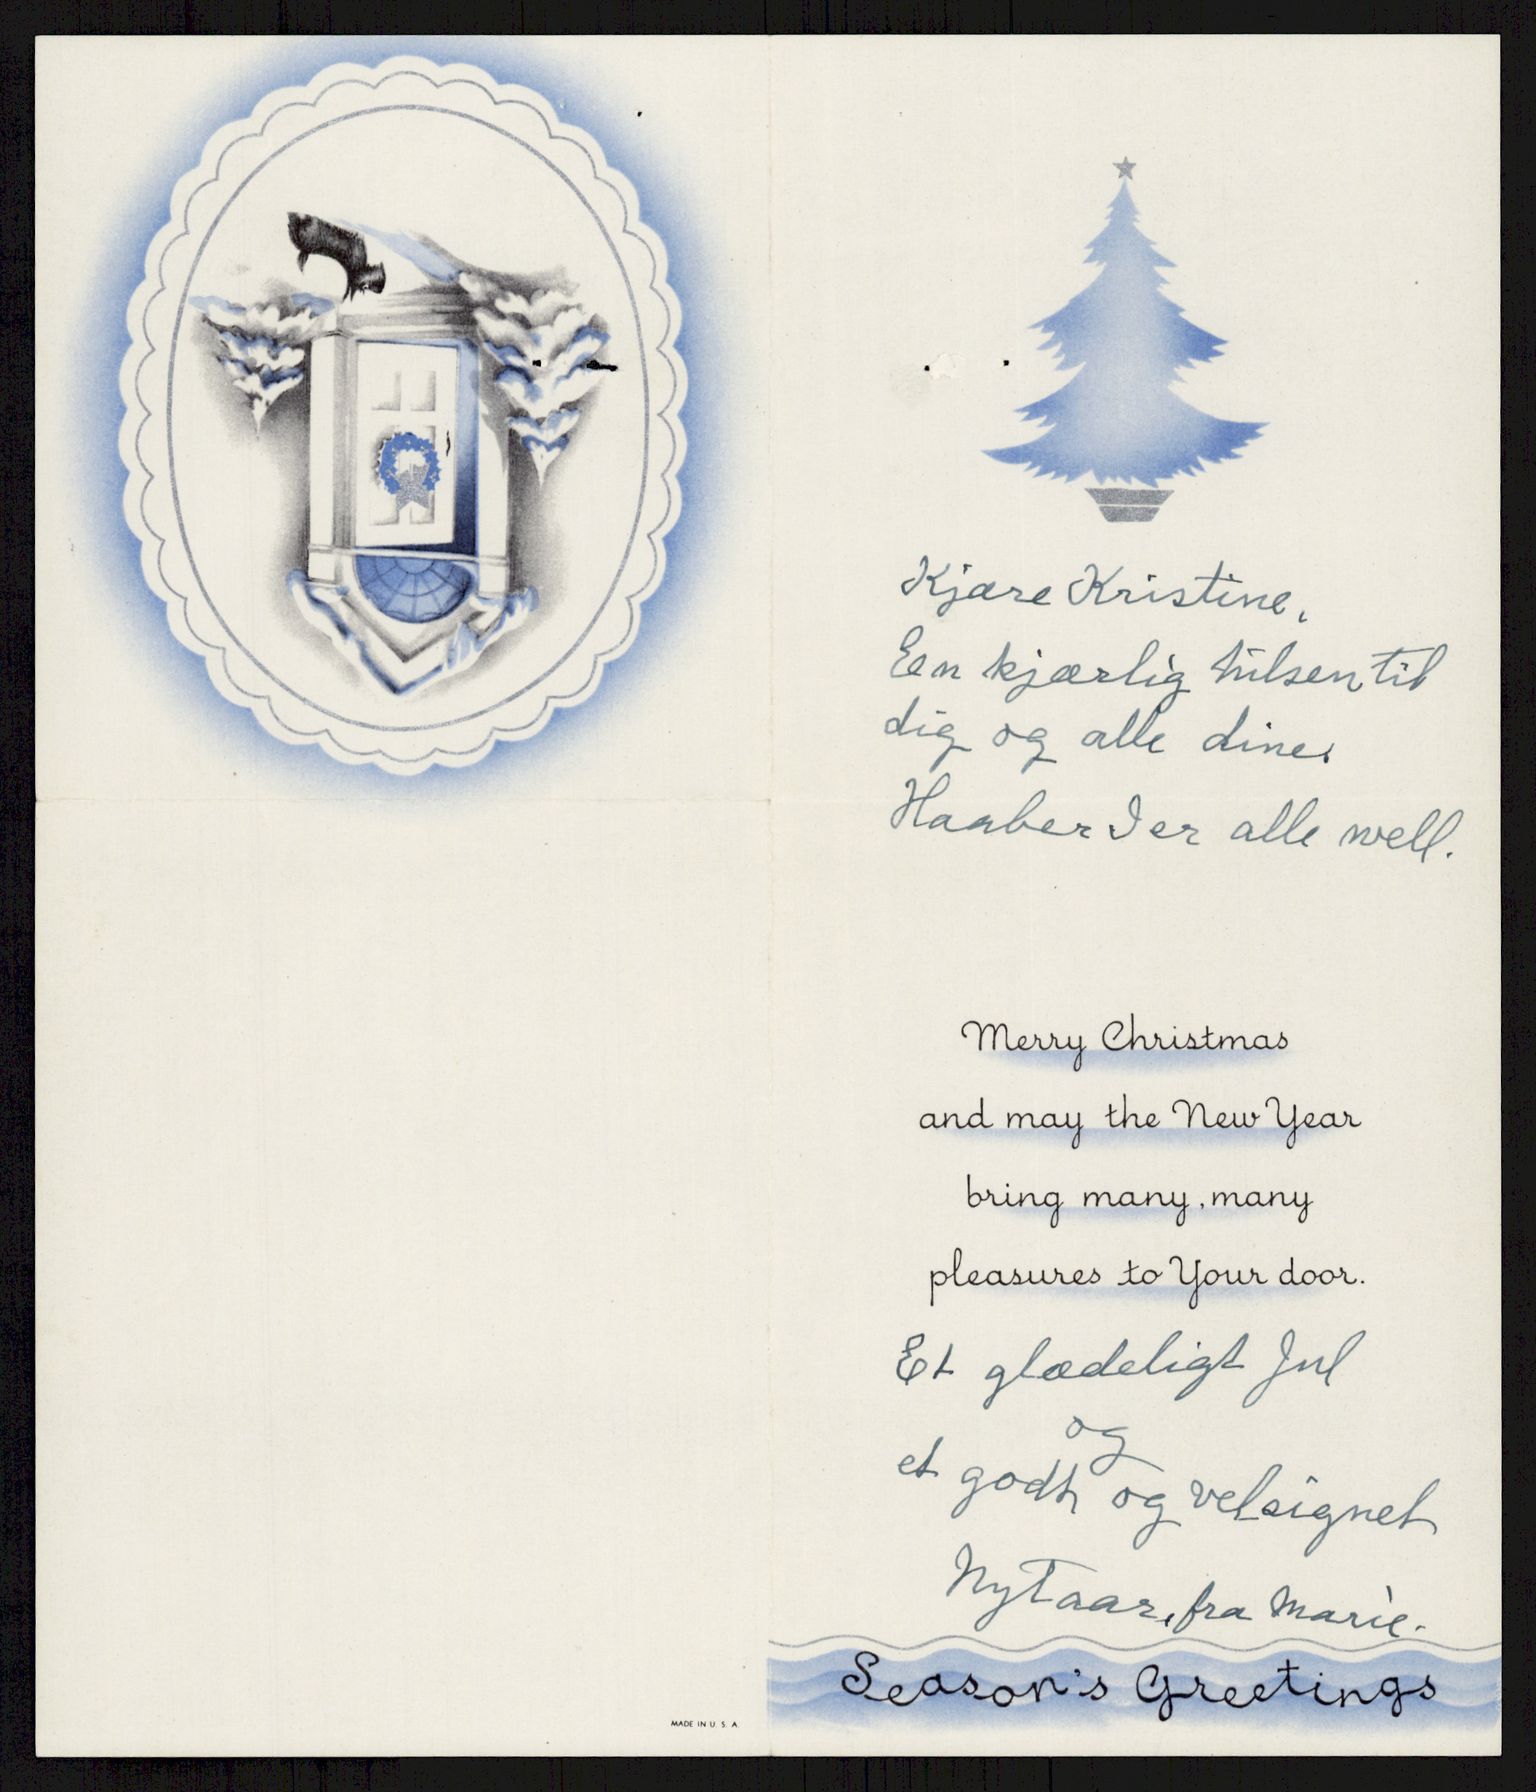 Kjære Kristine,
Een kjærlig hilsen til
dig og alle dine.
Haaber I er alle well.
Merry Christmas
and may the New Year
bring many, many
pleasures to Your door.
Et glædeligt Jul
og
et godt og velsignet
Nyt aar, fra Marie.
Season's Greetings
MADE IN U. S. A.